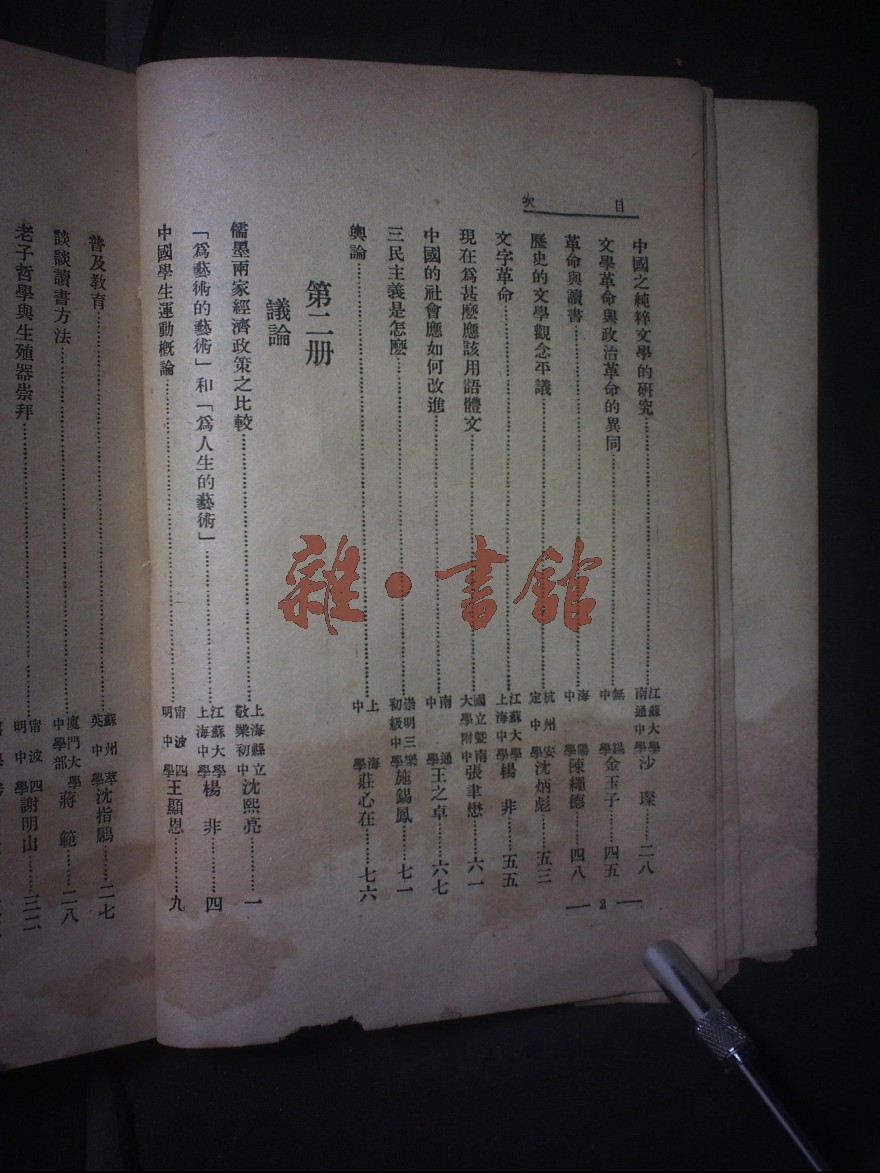 目次
中國之純粹文學的研究……江蘇大學南通中學沙璨……二八
文學革命與政治革命的異同……無錫中學金玉子……四五
革命與讀書……海陽中學陳繩德……四八
歷史的文學觀念平議……杭州安定中學沈炳彪……五三
文字革命……江蘇大學上海中學楊非……五五
現在爲甚麽應該用語體文……國立暨南大學附中張聿懋……六一
中國的社會應如何改進……南通中學王之卓……六七
三民主義是怎麽……崇明三樂初級中學施錫鳳……七一
輿論……上海中學莊心在……七六
第二册
議論
儒墨兩家經濟政策之比較……上海縣立敬業初中沈熙亮……一
「爲藝術的藝術」和「爲人生的藝術」……江蘇大學上海中學楊非……四
中國學生運動概論……甯波四明中學王顯恩……九
2
普及教育……蘇州萃英中學沈指鵬……二七
談談讀書方法……廈門大學中學部蔣範……二八
老子哲學與生殖器崇拜……甯波四明中學謝明山……三二
雜·書館